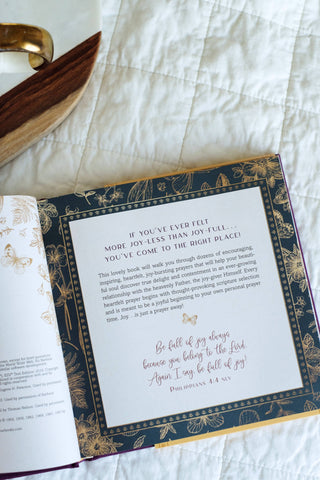 IF YOU'VE EVER FELT
MORE JOY-LESS THAN JOY-FULL...
YOU'VE COME TO THE RIGHT PLACE!
This lovely book will walk you through dozens of encouraging,
inspiring, heartfelt, joy-bursting prayers that will help your beauti-
ful soul discover true delight and contentment in an ever-growing
relationship with the heavenly Father, the joy-giver Himself. Every
heartfelt prayer begins with thought-provoking scripture selection
and is meant to be a joyful beginning to your own personal prayer
time. Joy. . .is just a prayer away!
Be full of joy always
because you belong to the Lord.
Again I say, be full of joy!
PHILIPPIANS 4:4 NLV